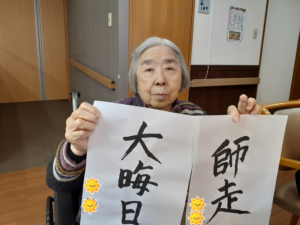 大晦日
師走